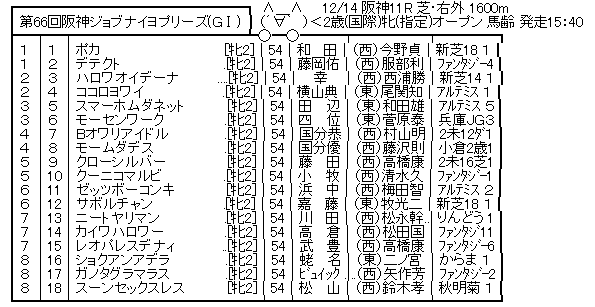 第66回阪神ジョブナイヨブリーズ(GⅠ) (´▽`)<2歳(国際)牝(指定)オープン 馬齢 発走15:40
12/14 阪神11R 芝・右外 1600m
1 1 ボカ [牝2] 54 和田 (西)今野貞 新芝18 1
1 2 デテクト [牝2] 54 藤岡佑 (西)服部利 ファンタジー4
2 3 ハロワオイデーナ …[牝2] 54 幸 (西)西浦勝 新芝14 1
2 4 ココロヨワイ [牝2] 54 横山典 (東)尾関知 アルテミス 1
3 5 スマーホムダネット [牝2] 54 田辺 (東)和田雄 アルテミス 5
3 6 モーセンワーク [牝2] 54 四位 (東)菅原泰 兵庫JG3
4 7 Bオワリアイドル [牝2] 54 国分恭 (西)村山明 2未12ダ1
4 8 モームダデス [牝2] 54 国分優 (西)藤沢則 小倉2歳1
5 9 クローシルバー [牝2] 54 藤田 (西)高橋康 2未16芝1
5 10 クーニコマルビ [牝2] 54 小牧 (西)清水久 ファンタジー1
6 11 ゼッツボーコンキ [牝2] 54 浜中 (西)梅田智 アルテミス 2
6 12 サボルチャン [牝2] 54 嘉藤 (東)牧光二 新芝18 1
7 13 ニートヤリマン [牝2] 54 川田 (西)松永幹… りんどう11
7 14 カイワハロワー [牝2] 54 高倉 (西)松田国 ファンタジ11
7 15 レオパレスデナィ [牝2] 54 武豊 (西)高橋康 ファンタジー6
8 16 ショクアンアデラ [牝2] 54 蛯名 (東)二ノ宮 からま 1
8 17 ガノタグラマラス [牝2] 54 ビュイック… (西)矢作芳 ファンタジー2
8 18 スーンセックスレス [牝2] 54 松山 (西)鈴木孝 秋明菊 1